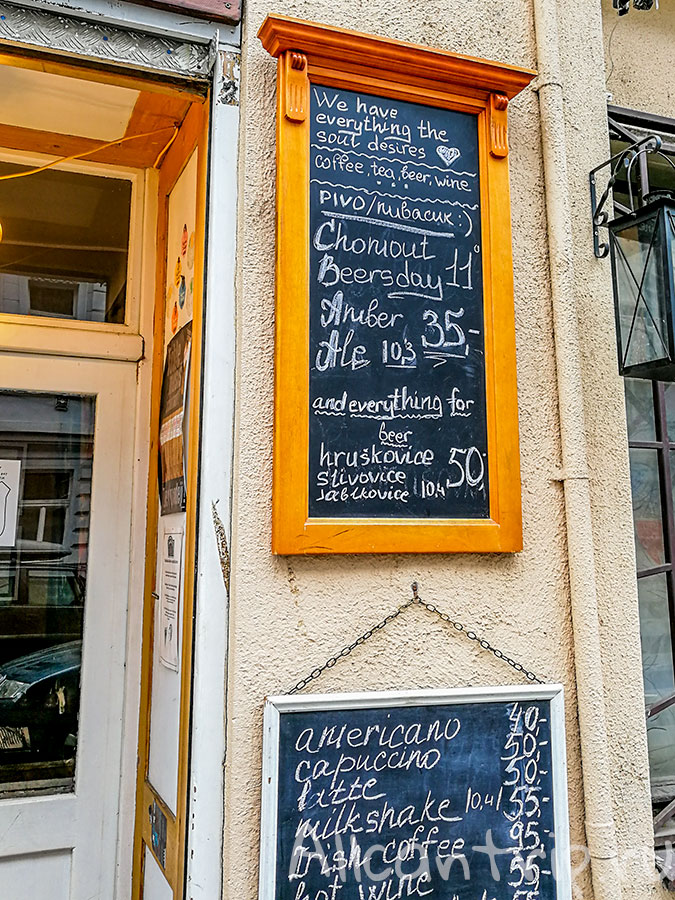 We have
everything the
soul desires
coffee, tea, beer, wine
PIVO/пивасик :)
Chomout
Beersday 11°
Amber 35,-
Ale 10,3
and everything for
beer
hruškovice 50,-
Slivovice
Jablkovice 10,4
americano 40,-
capuccino 50,-
latte 50,-
milkshake 10,4l 55,-
Irish coffee 95,-
hot wine 55,-
Alicantrip.ru